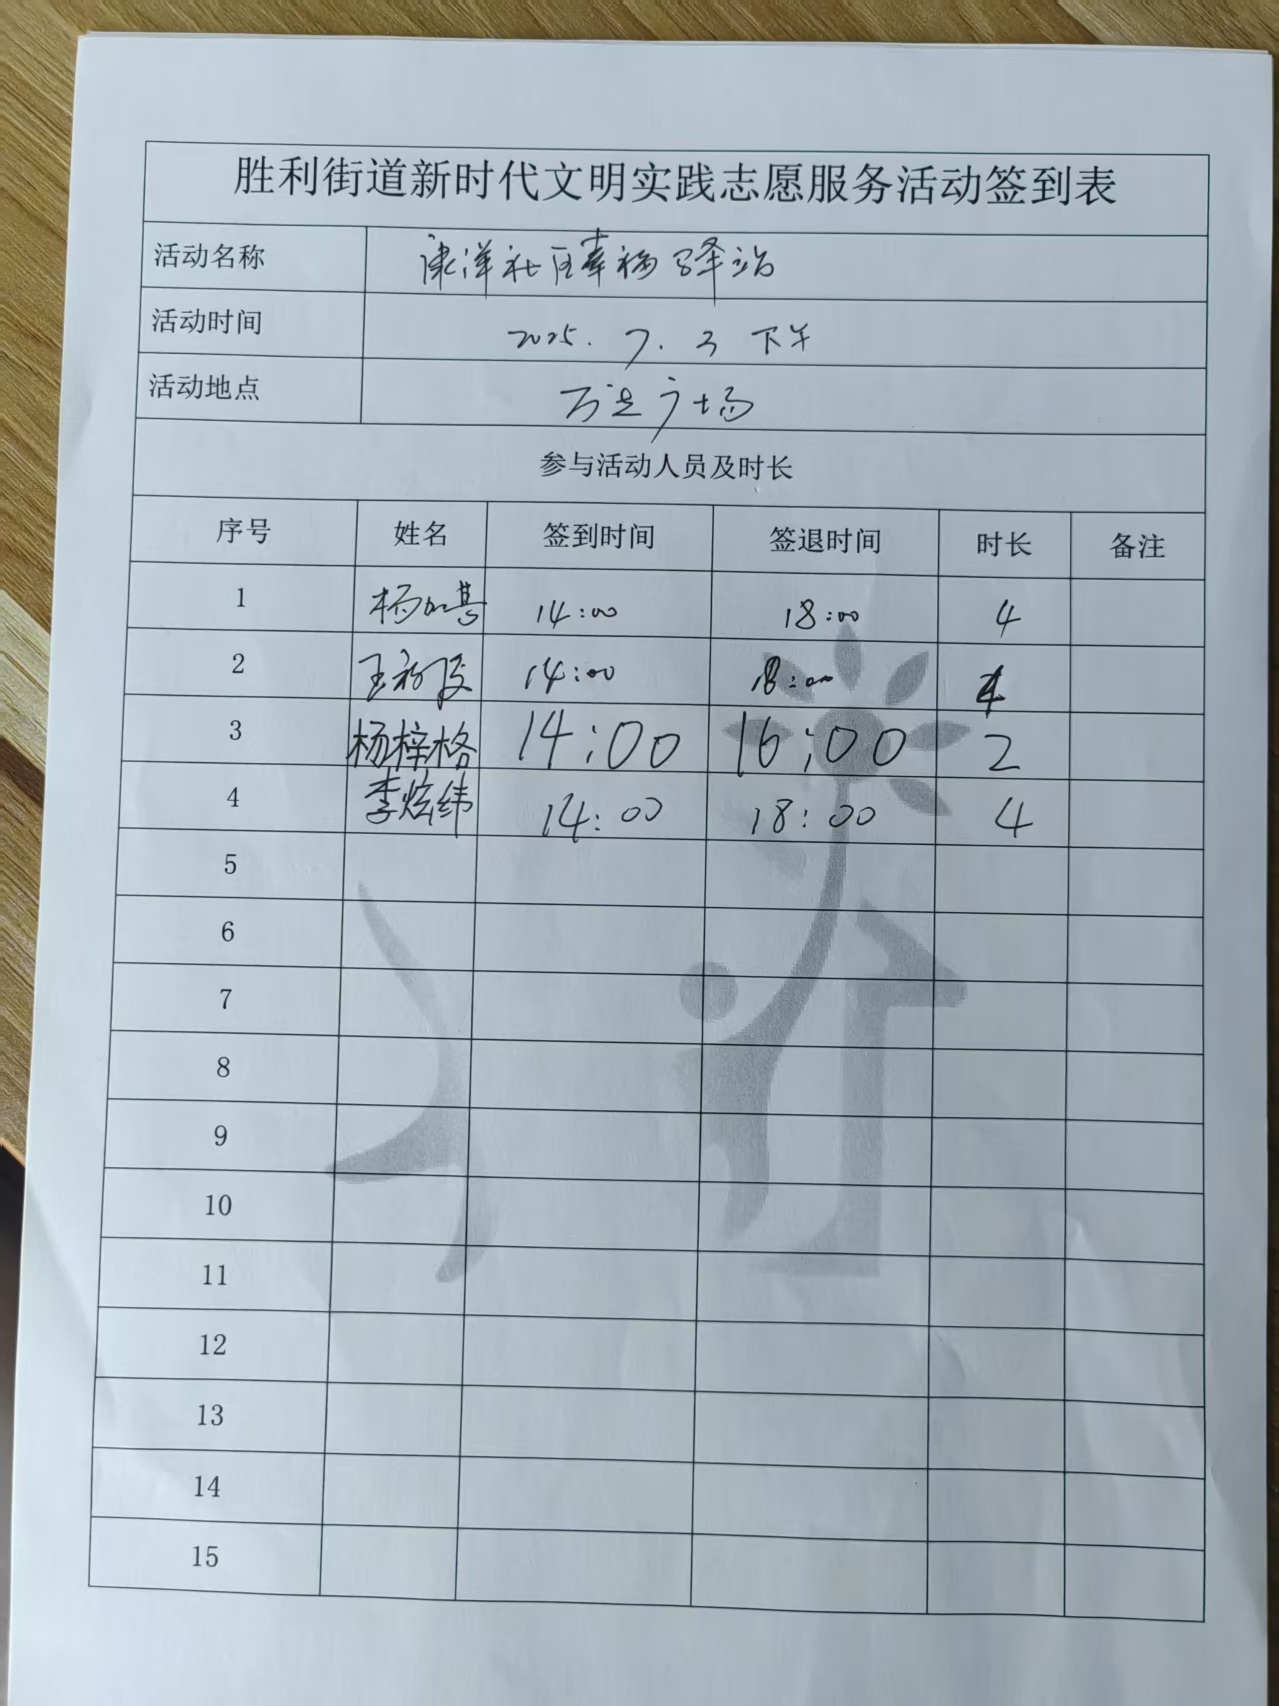 胜利街道新时代文明实践志愿服务活动签到表
活动名称 康洋社区幸福驿站
活动时间 2025.7.3 下午
活动地点 万达广场
参与活动人员及时长
序号 姓名 签到时间 签退时间 时长 备注
1 杨 14:00 18:00 4
2 王 14:00 18:00 4
3 杨梓格 14:00 16:00 2
4 李炫纬 14:00 18:00 4
5
6
7
8
9
10
11
12
13
14
15